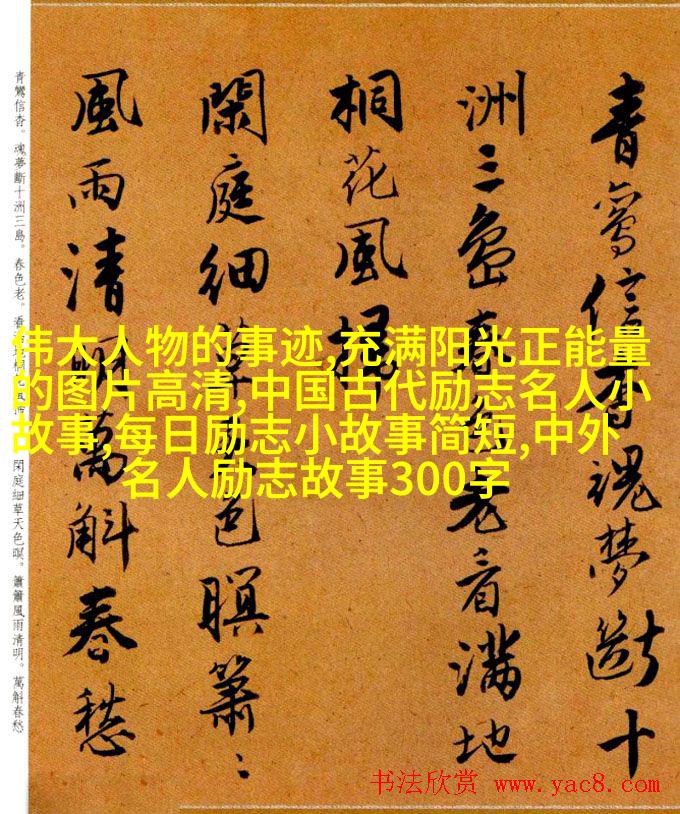 青鸞信杳魂夢斷十
洲三島春色老看滿地
桐花風掃
閑庭細草天色暝簫〻
風雨清明萬斛春愁
青鸞信杳。魂夢斷十洲三島。春色老。看 閑庭細草天色暝。簫簫風雨清明。萬斛春愁
伟大人物的事迹,充满阳光正能量
的图片高清,中国古代励志名人小
故事,每日励志小故事简短,中外
名人励志故事300字
书法欣赏 www.yac8.com